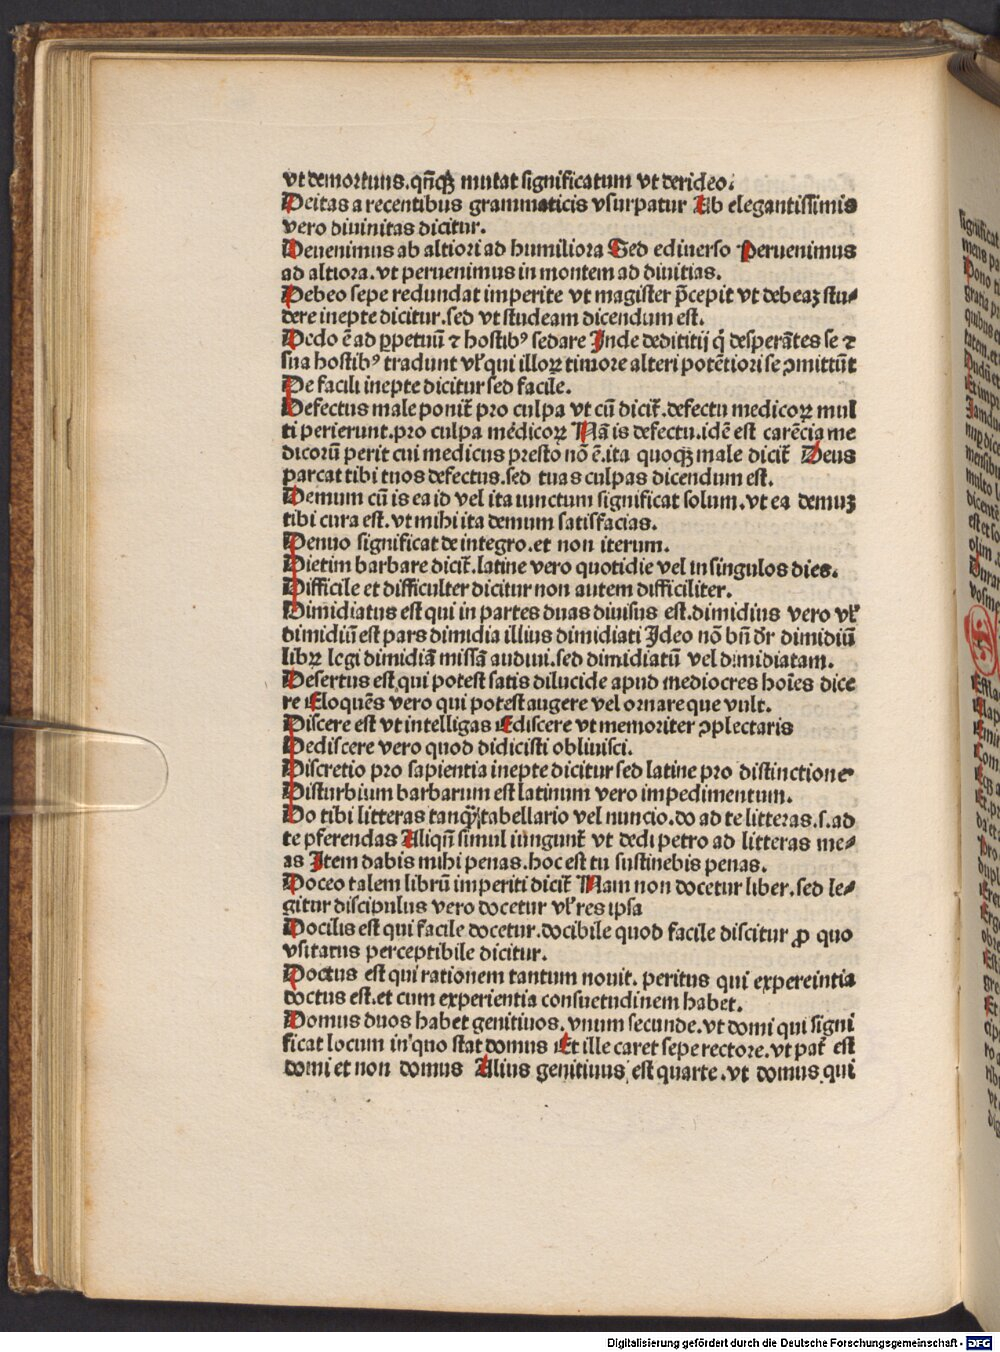 vt demortuus.qñcꝫ mutat significatum vt derideo.
Deitas a recentibus grammaticis vsurpatur Ab elegantissimis
vero diuinitas dicitur.
Deuenimus ab altiori ad humiliora Sed ediuerso Peruenimus
ad altiora.vt peruenimus in montem ad diuitias.
Debeo sepe redundat imperite vt magister p̄cepit vt debeaꝫ stu⸗
dere inepte dicitur.sed vt studeam dicendum est.
Dedo ē ad ꝑpetuū ⁊ hostibꝰ sedare Inde dedititij q̇ desperātes se ⁊
sua hostibꝰ tradunt vl̕ qui illoꝝ timore alteri potētiori se ꝯmittūt
De facili inepte dicitur sed facile.
Defectus male ponit̄ pro culpa vt cū dicit̄.defectu medicoꝝ mul
ti perierunt.pro culpa medicoꝝ Nā is defectu.idē est carēcia me
dicorū perit cui medicus presto nō ē.ita quoqꝫ male dicit̄ Deus
parcat tibi tuos defectus.sed tuas culpas dicendum est.
Demum cū is ea id vel ita iunctum significat solum.vt ea demuꝫ
tibi cura est.vt mihi ita demum satisfacias.
Denuo significat de integro.et non iterum.
Dietim barbare dicit̄.latine vero quotidie vel in singulos dies.
Difficile et difficulter dicitur non autem difficiliter.
Dimidiatus est qui in partes duas diuisus est.dimidius vero vl̕
dimidiū est pars dimidia illius dimidiati Ideo nō bn̄ dr̄ dimidiū
libꝝ legi dimidiā missā audiui.sed dimidiatū vel dimidiatam.
Desertus est qui potest satis dilucide apud mediocres hoīes dice
re Eloquēs vero qui potest augere vel ornare que vult.
Discere est vt intelligas Ediscere vt memoriter ꝯplectaris
Dediscere vero quod didicisti obliuisci.
Discretio pro sapientia inepte dicitur sed latine pro distinctione
Disturbium barbarum est latinum vero impedimentum.
Do tibi litteras tanqꝫ tabellario vel nuncio.do ad te litteras.s.ad
te pferendas Aliqn̄ simul iungunt̄ vt dedi petro ad litteras me⸗
as Item dabis mihi penas.hoc est tu sustinebis penas.
Doceo talem librū imperiti dicit̄ Nam non docetur liber.sed le⸗
gitur discipulus vero docetur vl̕ res ipsa
Docilis est qui facile docetur.docibile quod facile discitur ꝓ quo
vsitatus perceptibile dicitur.
Doctus est qui rationem tantum nouit. peritus qui expereintia
doctus est.et cum experientia consuetudinem habet.
Domus duos habet genitiuos.vnum secunde.vt domi qui signi
ficat locum in quo stat domus Et ille caret sepe rectore.vt pat̄ est
domi et non domus Alius genitiuus est quarte.vt domus qui
Digitalisierung gefördert durch die Deutsche Forschungsgemeinschaft - DFG